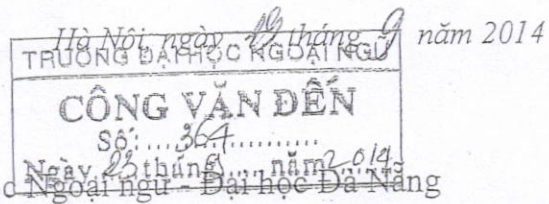 Hà Nội, ngày tháng 9 năm 2014
TRƯỜNG ĐẠI HỌC NGOẠI NGỮ
CÔNG VĂN ĐẾN
Số:....364..............
Ngày..23 tháng 9... năm 2014
c Ngoại ngữ - Đại học Đà Nẵng